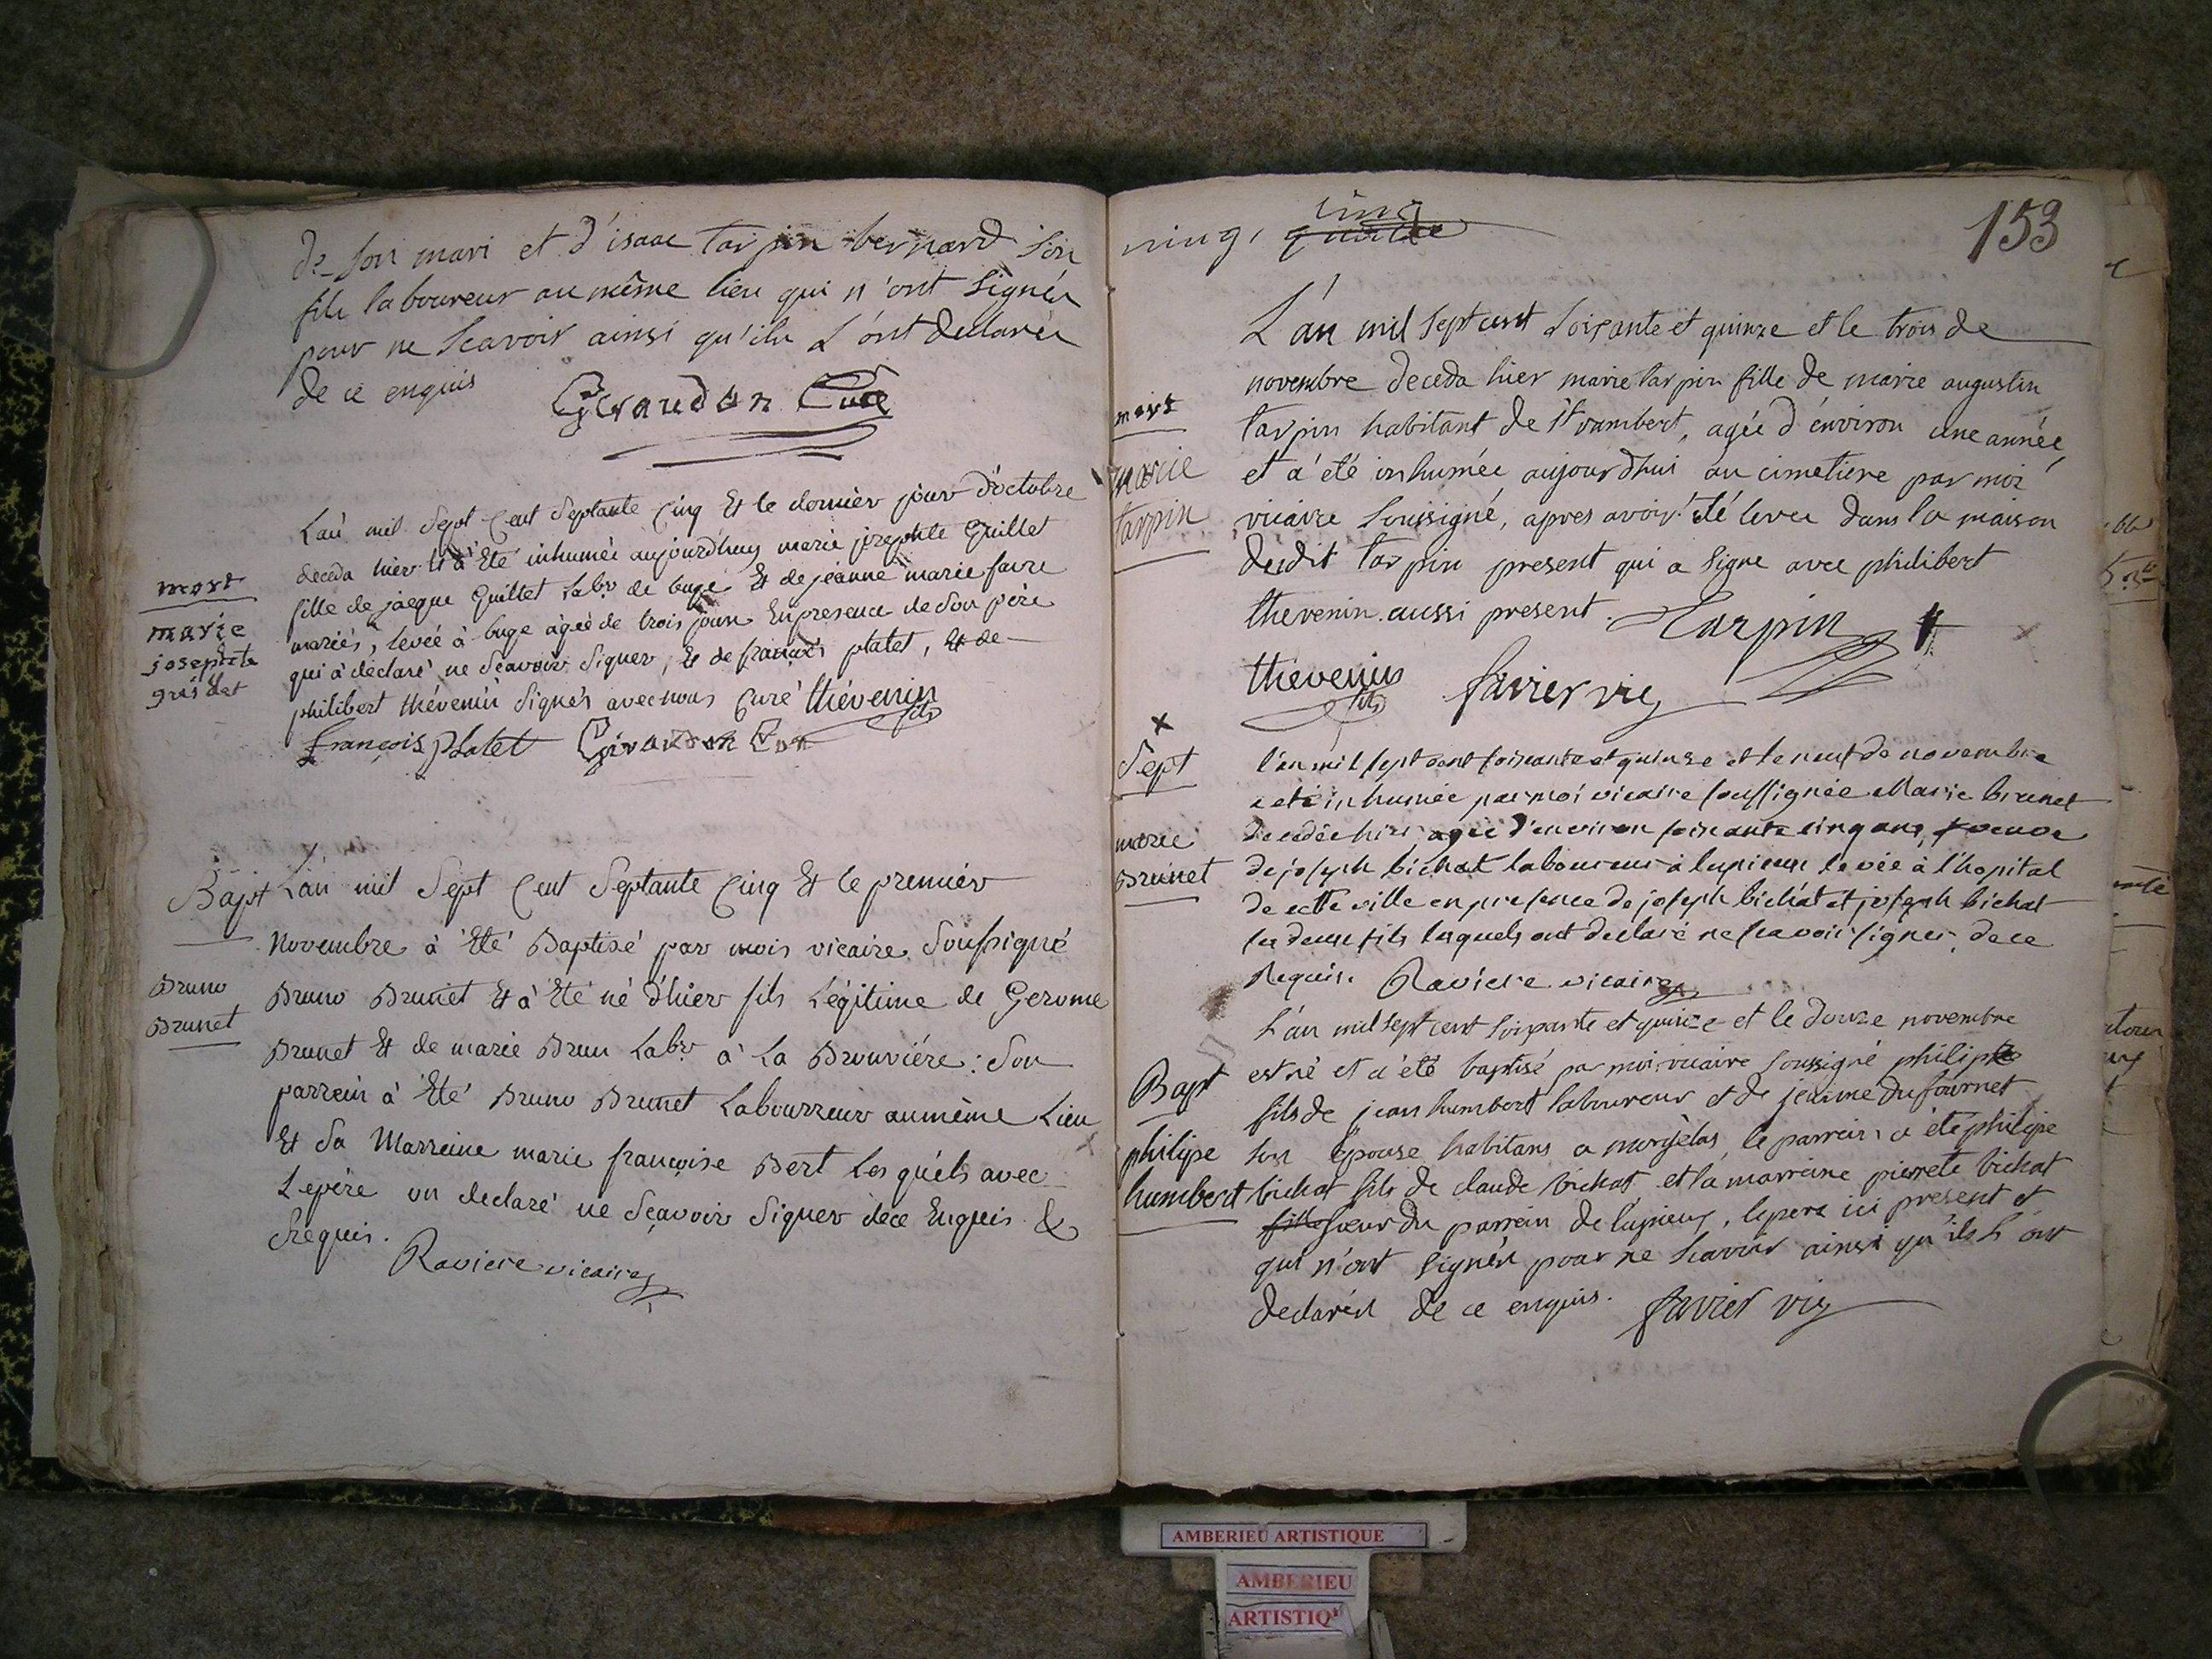 de son mari et d'isaac tarpin bernard son
fils laboureur au même lieu qui n'ont signés
pour ne scavoir ainsi qu'ils l'ont declarés
de ce enquis Giraudon Curé
mort
marie
josephte
L'an mil Sept Cent Septante Cinq Et le dernier jour d'octobre
deceda hier Et à Eté inhumée aujourdhuy marie josephte Guillet
fille de jacque Guillet Labr de buge Et de jeanne marie favre
mariés, levée à buge agée de trois jours En presence de Son père
qui à declaré ne Sçavoir Signer, Et de françois platet, Et de
philibert thévenin Signés avec nous Curé thévenin fils
françois Platet Giraudon Curé
Bapt
Bruno
Brunet
L'an mil Sept Cent Septante Cinq Et le premier
Novembre à Eté Baptisé par mois vicaire Soussigné
Bruno Brunet Et à Eté né d'hier fils Légitime de Gerome
Brunet Et de marie Brun Labr à La Brouviére : Son
parrein à Eté Bruno Brunet Labourreur au même Lieu
Et Sa Marreine marie françoise Bert Les quéls avec
Le père on declaré ne Sçavoir Signer dece Enquis &
Requis.
Raviere vicaire
cinq
quatre
153
mort
marie
tarpin
L'an mil sept cent soixante et quinze et le trois de
novembre deceda hier marie tarpin fille de marie augustin
tarpin habitant de st rambert, agée d'environ une année,
et a été inhumée aujourdhui au cimetiere par moi
vicaire soussigné, apres avoir été levée dans la maison
dudit tarpin present qui a signe avec philibert
thevenin aussi present. Tarpin
thevenin fils favier vic
x
Sept
marie
Brunet
l'an mil sept cent soixante et quinze et le neuf de novembre
a été inhumée par moi vicaire soussignée Marie brunet
decedée hier agée d'environ soixante cinq ans, veuve
de joseph bichat laboureur à lupieux levée à l'hopital
de cette ville en presence de joseph bichat et joseph bichat
ses deux fils lesquels ont declaré ne scavoir signer de ce
Requis. Raviere vicaire
Bapt
philipe
humbert
L'an mil sept cent soixante et quinze et le douze novembre
est né et a été baptisé par moi vicaire soussigné philipe
fils de jean humbert laboureur et de jeanne Dufournet
son Epouse habitans a morgelas, le parrain a été philipe
bichat fils de claude bichat et la marreine pierrete bichat
fille soeur du parrein de lupieux, le pere ici present et
qui n'ont signés pour ne scavoir ainsi qu'ils l'ont
declarés de ce enquis. favier vic
AMBERIEU ARTISTIQUE
AMBERIEU
ARTISTIQ'